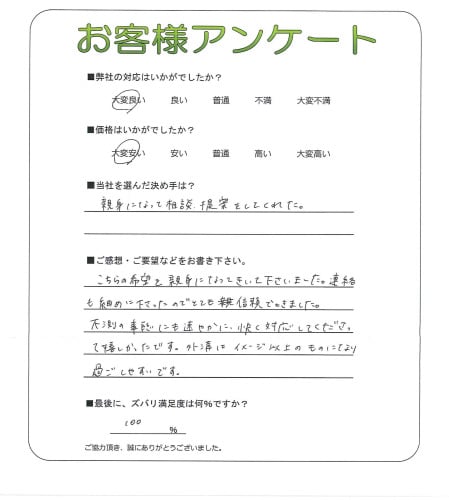 お客様アンケート
■弊社の対応はいかがでしたか？
大変良い 良い 普通 不満 大変不満
■価格はいかがでしたか？
大変安い 安い 普通 高い 大変高い
■当社を選んだ決め手は？
親身になって相談、提案をしてくれた。
■ご感想・ご要望などをお書き下さい。
こちらの希望を親身になってきいて下さいました。連絡
も細めに下さったのでとても信頼できました。
不測の事態にも速やかに、快く対応してくださっ
て嬉しかったです。外溝はイメージ以上のものになり
過ごしやすいです。
■最後に、ズバリ満足度は何％ですか？
100 ％
ご協力頂き、誠にありがとうございました。